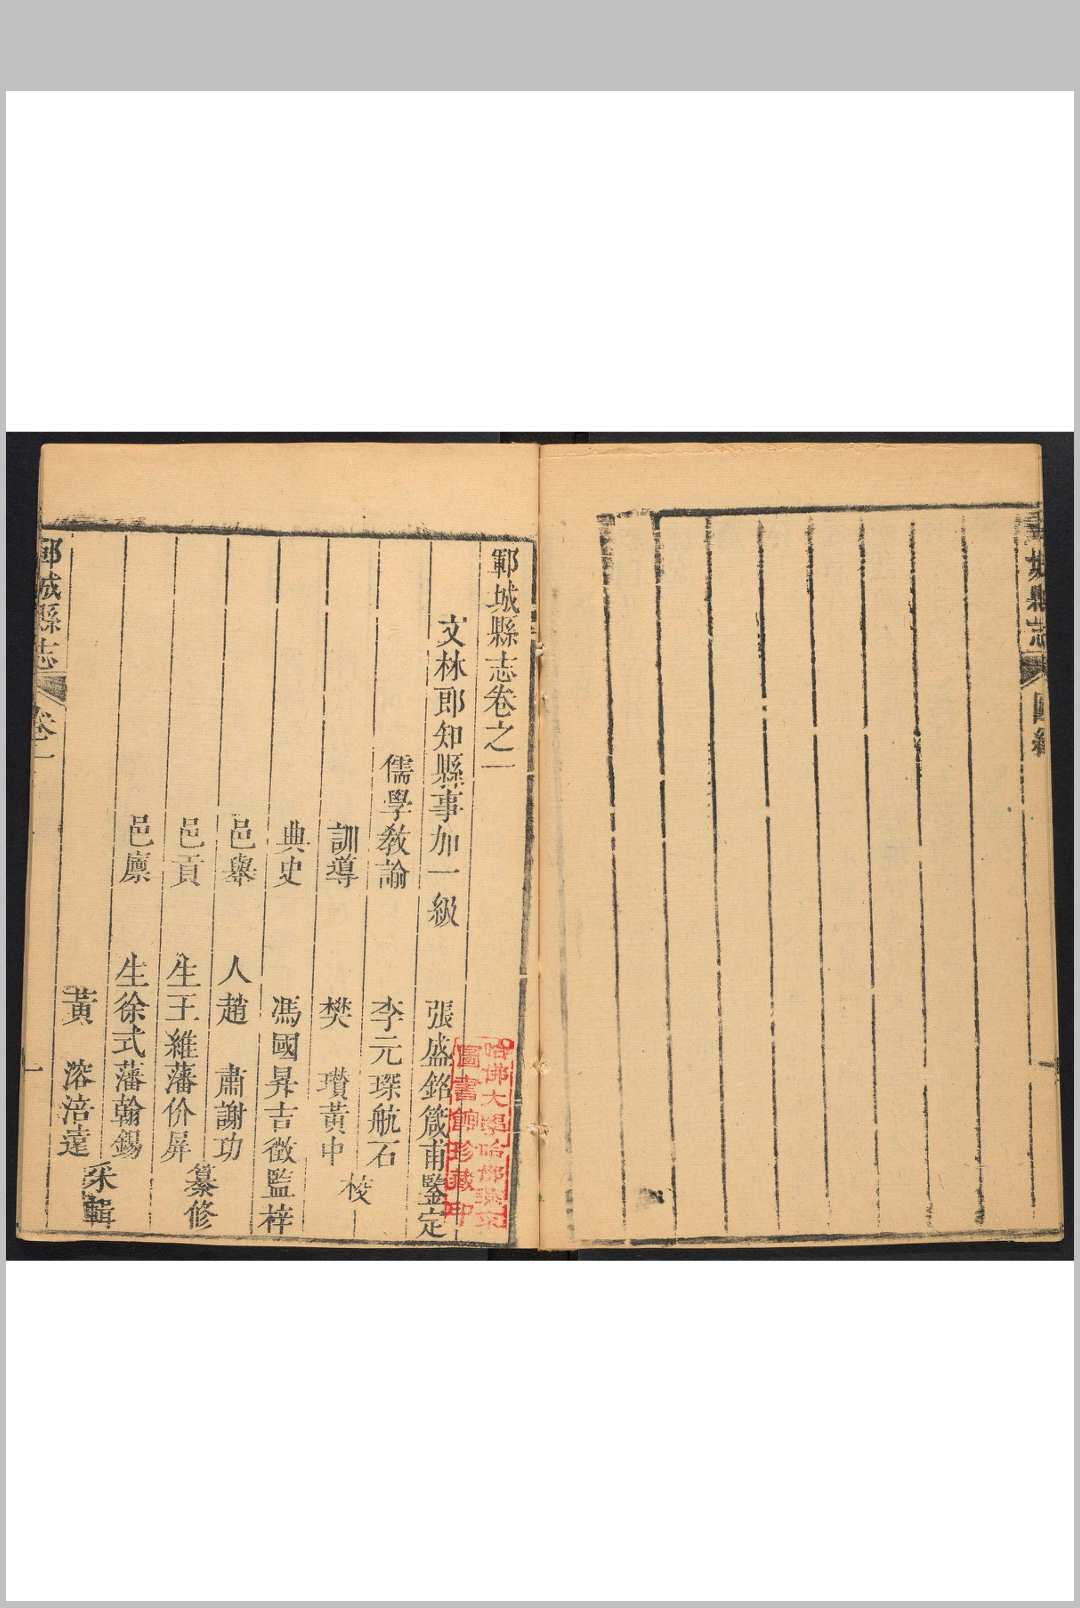 城縣志
鄆城縣志卷之一
文林郎知縣事加一級　張盛銘箴甫鑒定
儒學教諭　李元琛航石
訓導　樊　瓚黃中
校
典史　馮國昇吉徵監梓
邑舉　人趙　肅謝功
邑貢　生王維藩价屏
纂修
邑廩　生徐式藩翰錫
黃　溶涪達
采輯
哈佛大學哈佛燕京
圖書館珍藏印
鄆城縣志
卷一
一